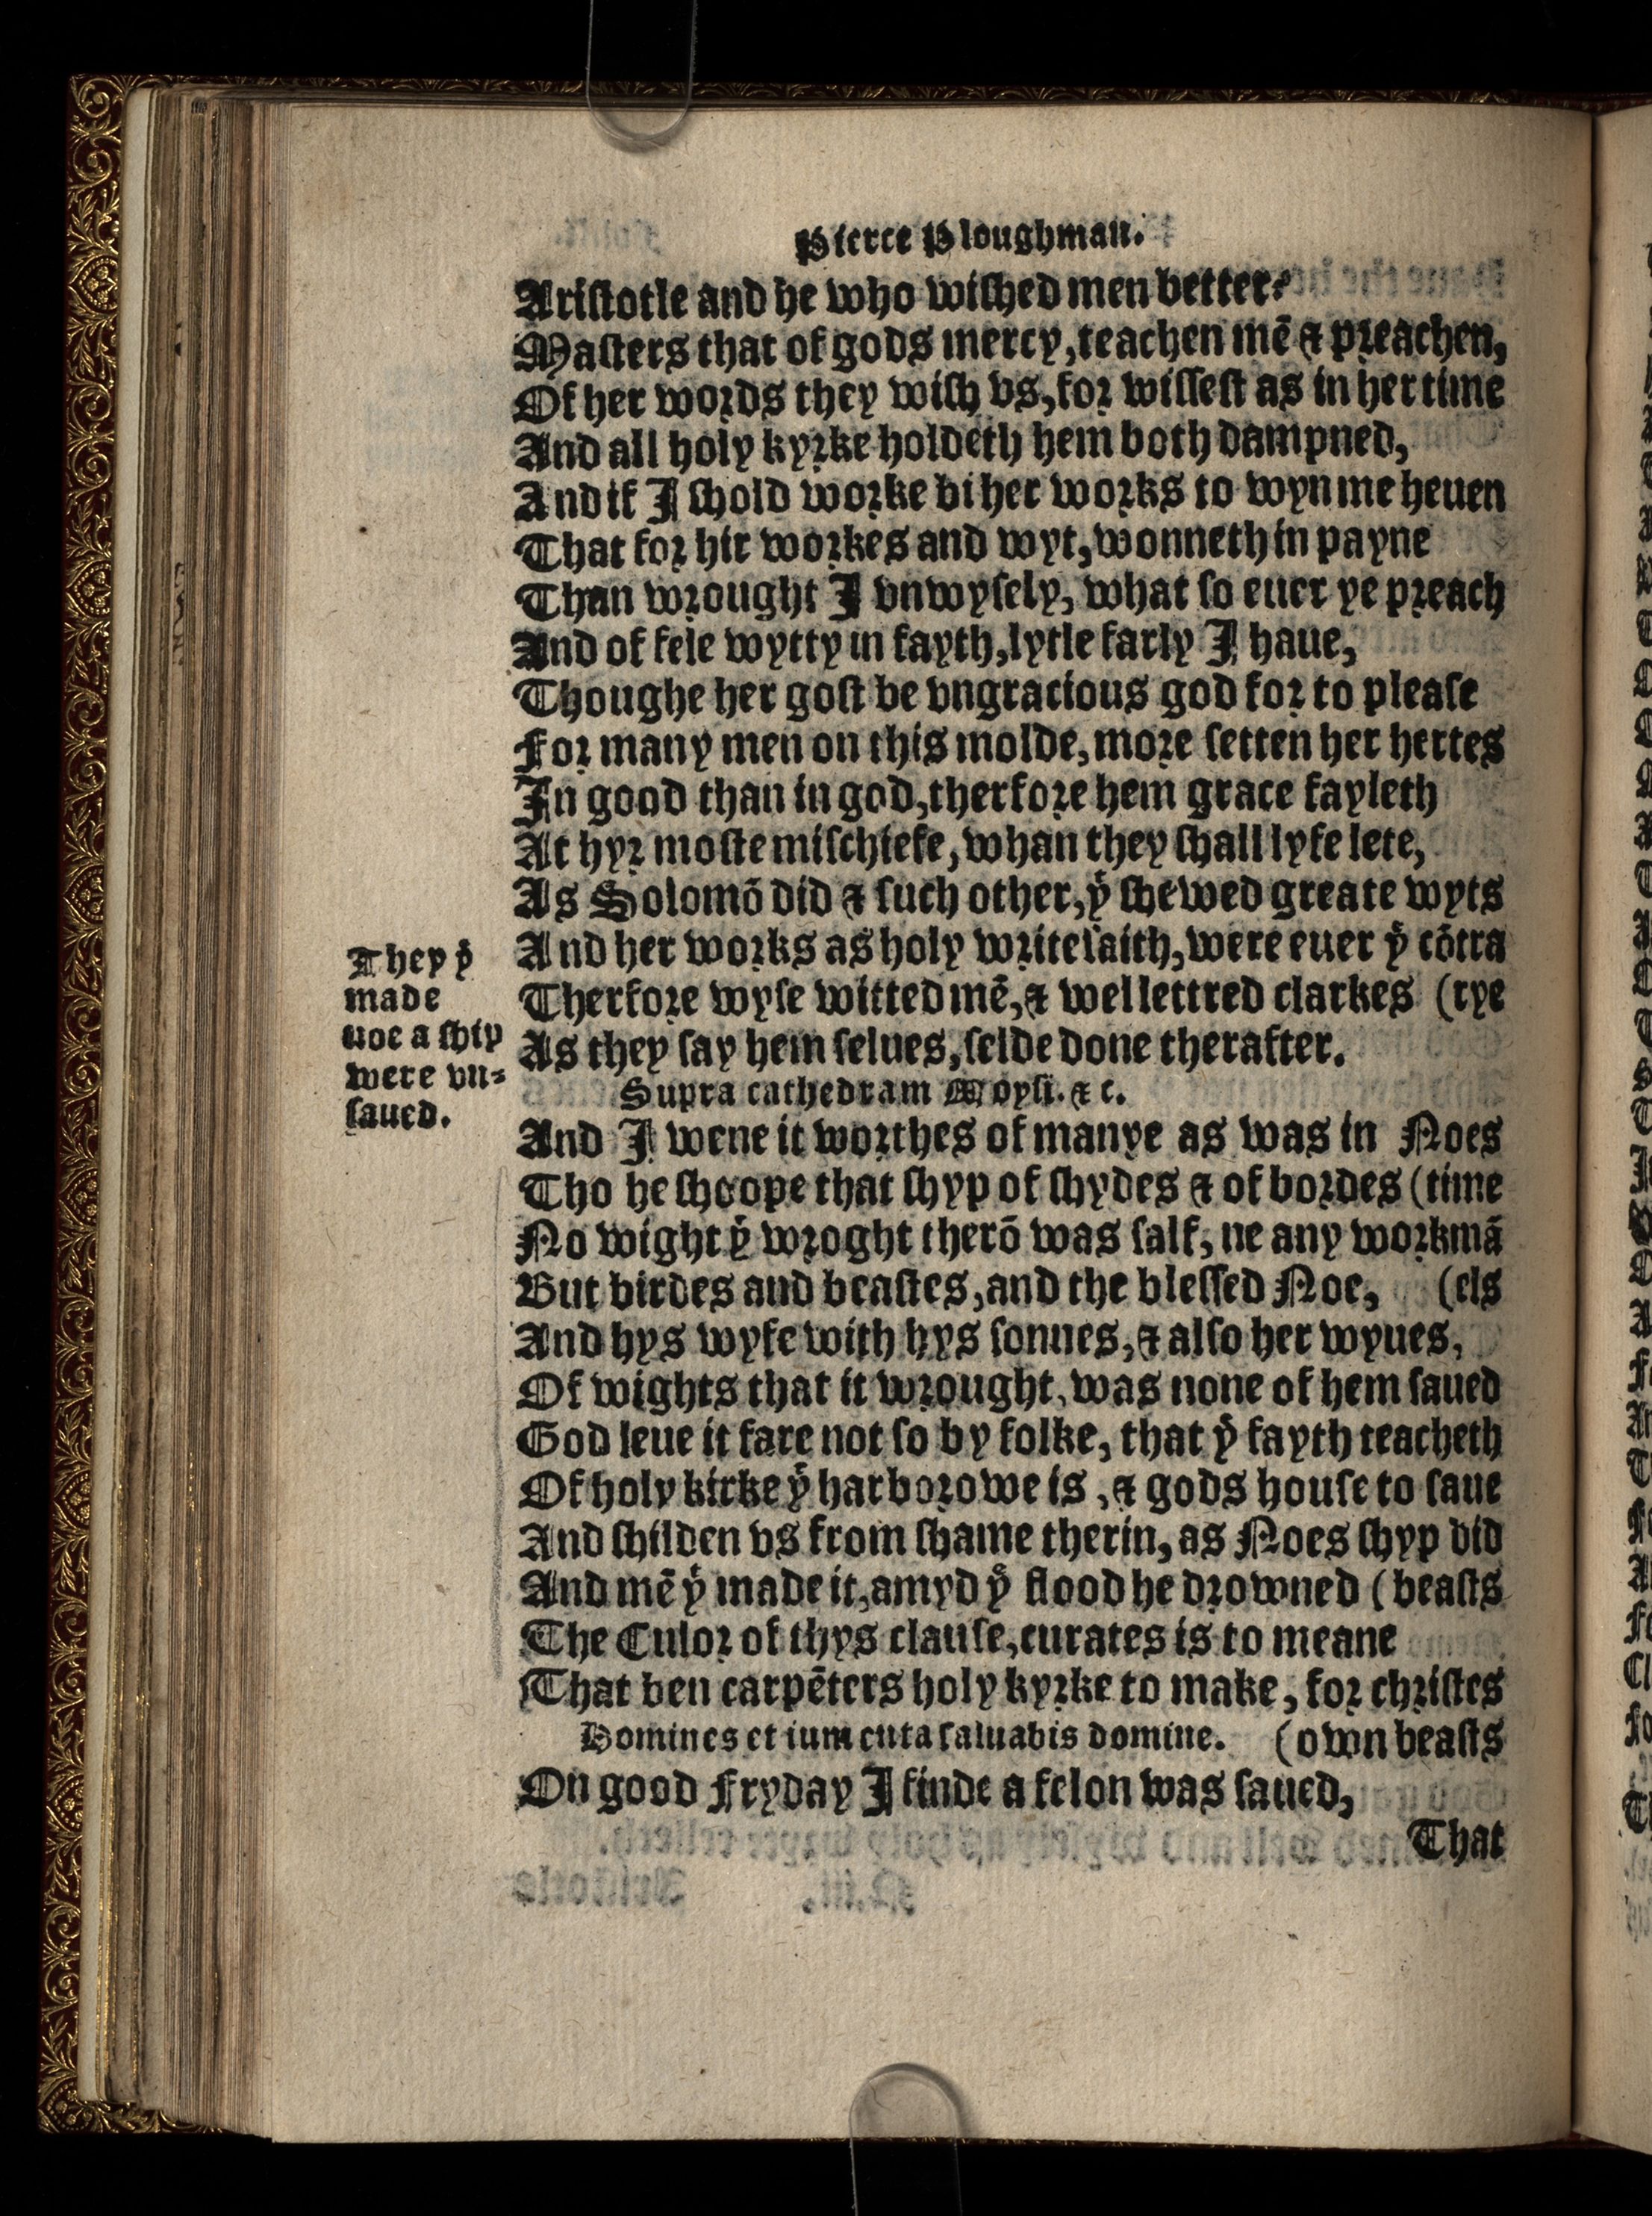 Pierce Ploughman.
Aristotle and he who wished men better?
Masters that of gods mercy, teachen mē & preachen,
Of her words they wish vs, for wissest as in her time
And all holy kyrke holdeth hem both dampned,
And if I shold worke bi her works to wyn me heuen
That for hir workes and wyt, wonneth in payne
Than wrought I vnwysely, what so euer ye preach
And of fele wytty in fayth, lytle farly I haue,
Thoughe her gost be vngracious god for to please
For many men on this molde, more setten her hertes
In good than in god, therfore hem grace fayleth
At hyr moste mischiefe, whan they shall lyfe lete,
As Solomō did & such other, yͭ shewed greate wyts
And her works as holy write saith, were euer yͤ cōtra
Therfore wyse witted mē, & wel lettred clarkes (rye
As they say hem selues, selde done therafter.
They yͭ
made
noe a ship
were vn=
saued.
Supra cathedram Moysi. & c.
And I wene it worthes of manye as was in Noes
Tho he shoope that shyp of shydes & of bordes (time
No wight yͭ wroght therō was salf, ne any workmā
But birdes and beastes, and the blessed Noe, (els
And hys wyfe with hys sonnes, & also her wyues,
Of wights that it wrought, was none of hem saued
God leue it fare not so by folke, that yͤ fayth teacheth
Of holy kirke yͭ harborowe is, & gods house to saue
And shilden vs from shame therin, as Noes shyp did
And mē yͭ made it, amyd yͤ flood he drowned (beasts
The Culor of thys clause, curates is to meane
That ben carpēters holy kyrke to make, for christes
Homines et iumenta saluabis domine. (own beasts
On good Fryday I finde a felon was saued,
That